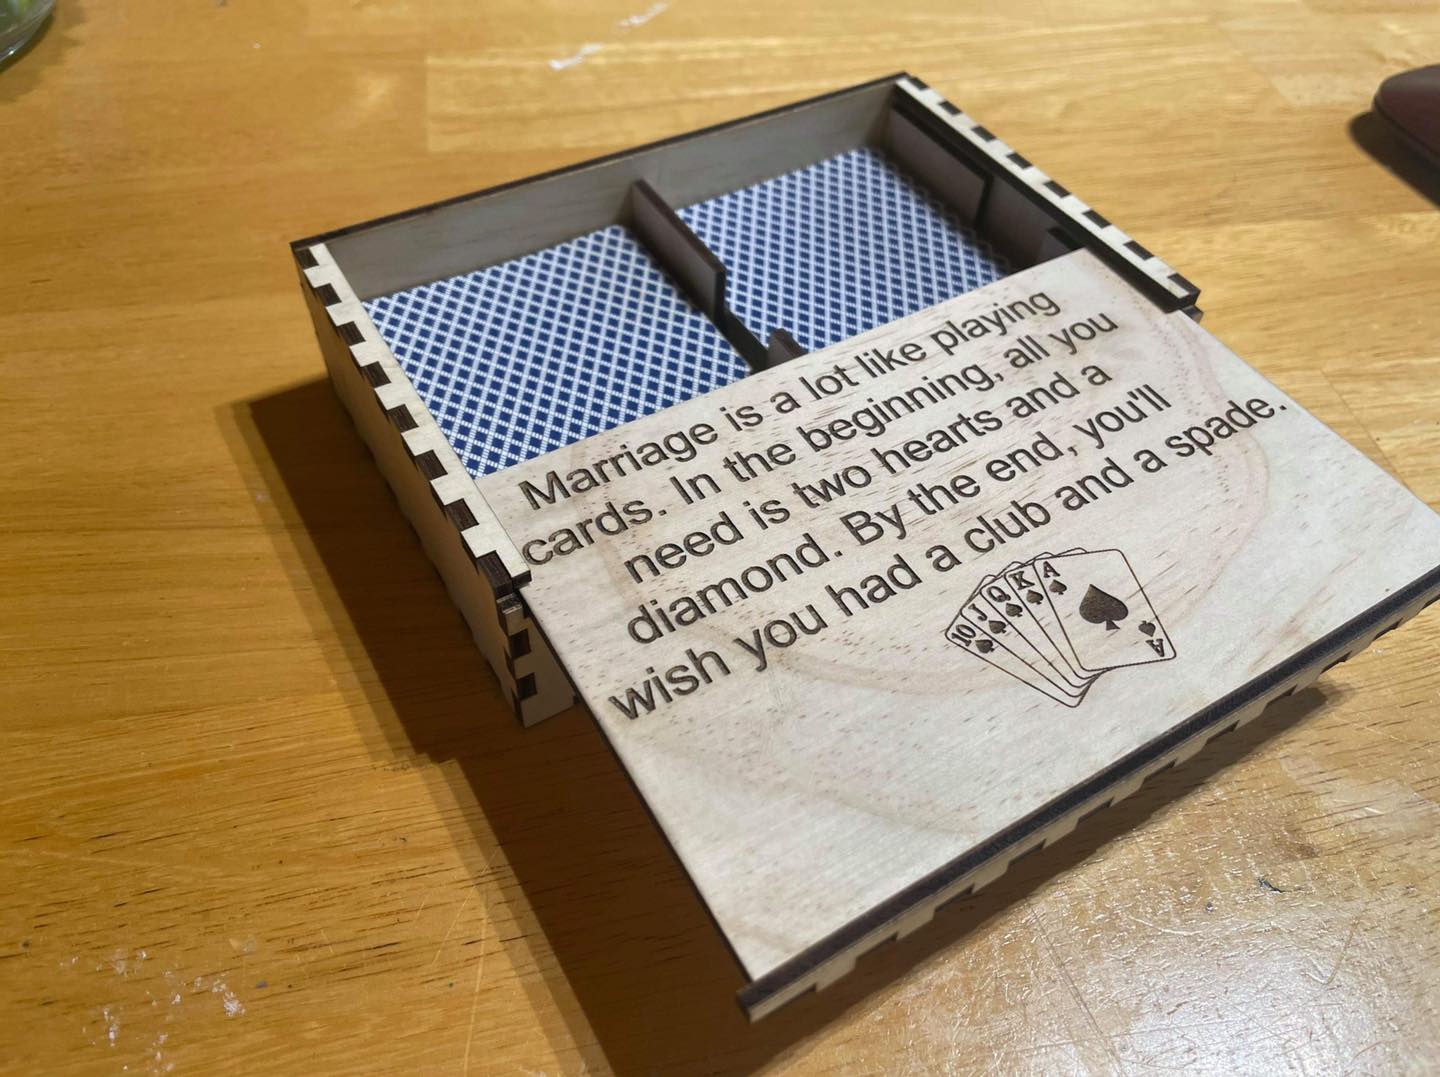 Marriage is a lot like playing
cards. In the beginning, all you
need is two hearts and a
diamond. By the end, you'll
wish you had a club and a spade.
10 J Q K A
A